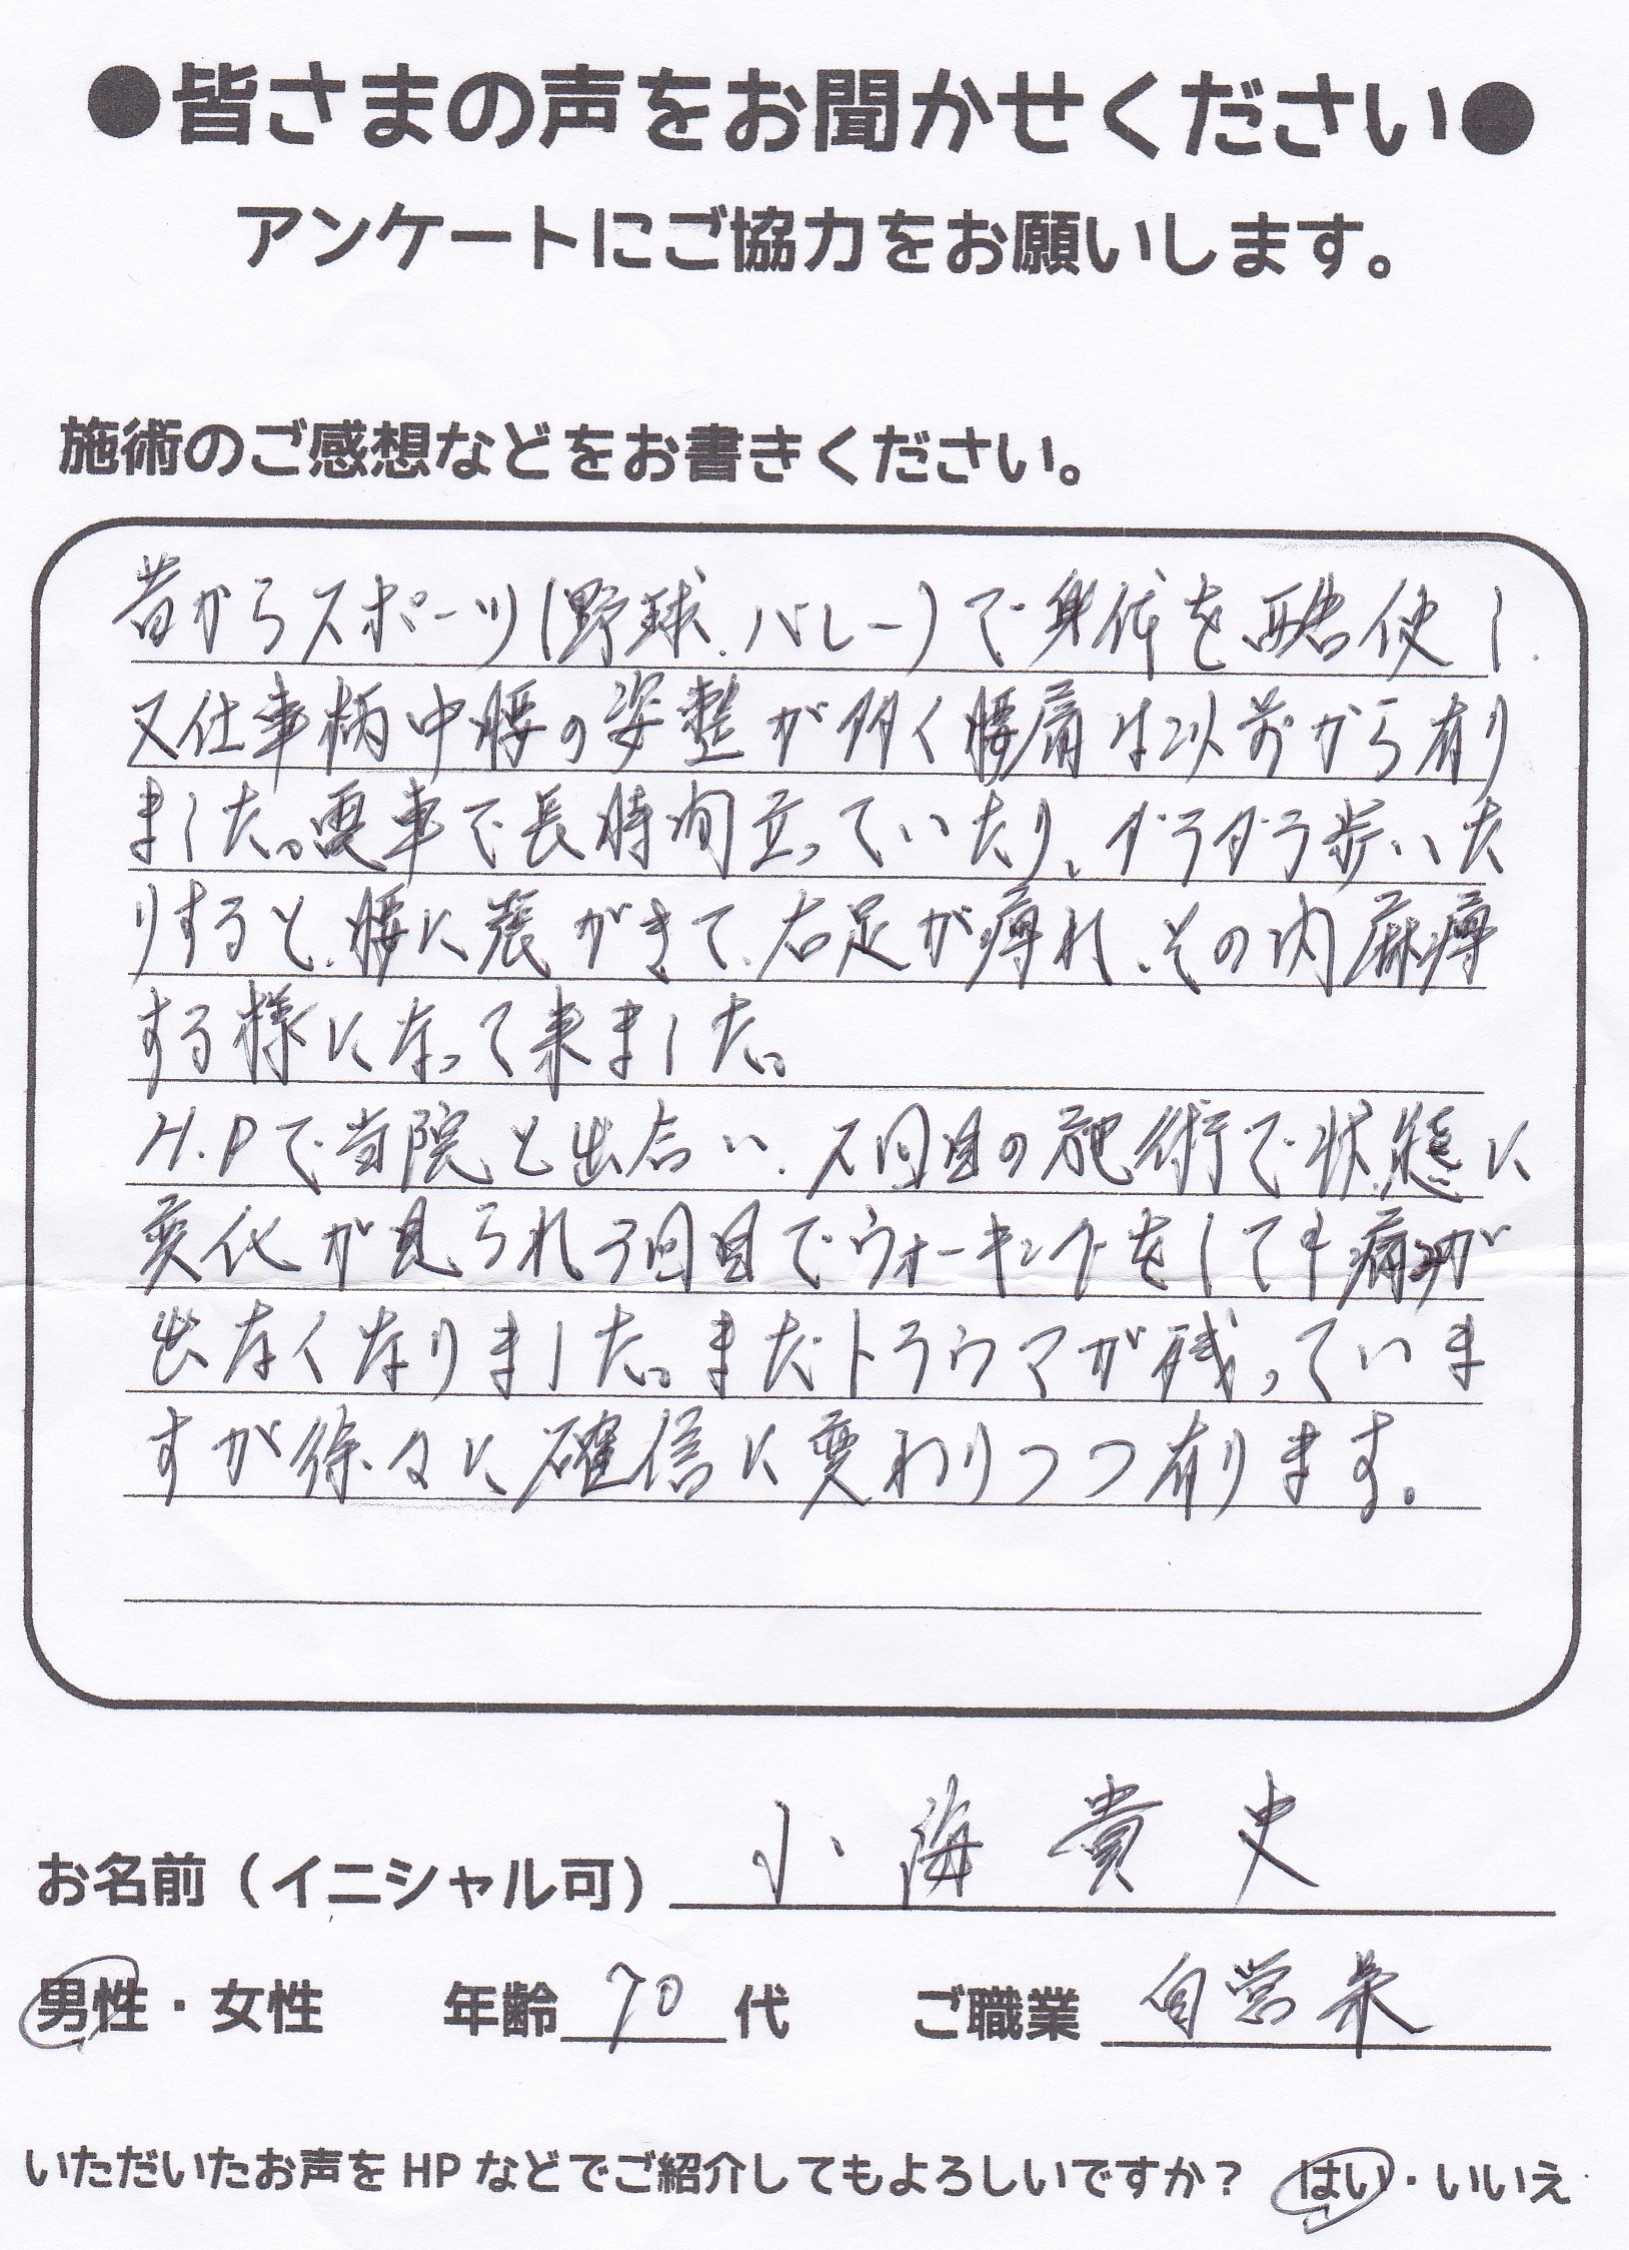 ●皆さまの声をお聞かせください●
アンケートにご協力をお願いします。
施術のご感想などをお書きください。
昔からスポーツ(野球、バレー)で身体を酷使し
又仕事柄中腰の姿整が多く腰痛は以前から有り
ました。電車で長時間立っていたり、ダラダラ歩いた
りすると、腰に張がきて、右足が痺れ、その内麻痺
する様になって来ました。
H.Pで当院と出合い、2回目の施術で状態に
変化が見られ3回目でウォーキングをしても痛みが
出なくなりました。まだトラウマが残っていま
すが徐々に確信に変わりつつ有ります。
お名前（イニシャル可） 小海貴史
男性・女性 年齢 70 代 ご職業 自営業
いただいたお声をHPなどでご紹介してもよろしいですか？ はい・いいえ